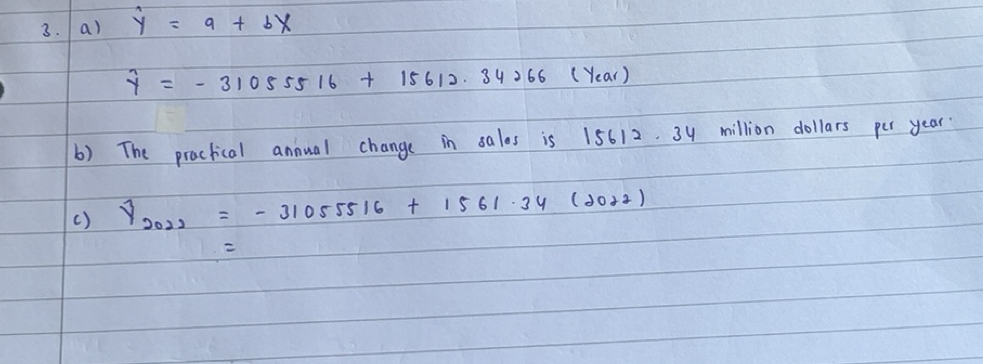 3. a) Ŷ = a + bX
Ŷ = - 31055516 + 15612.34266 (Year)
b) The practical annual change in sales is 15612.34 million dollars per year.
c) Ŷ2022 = - 31055516 + 1561.34 (2022)
=